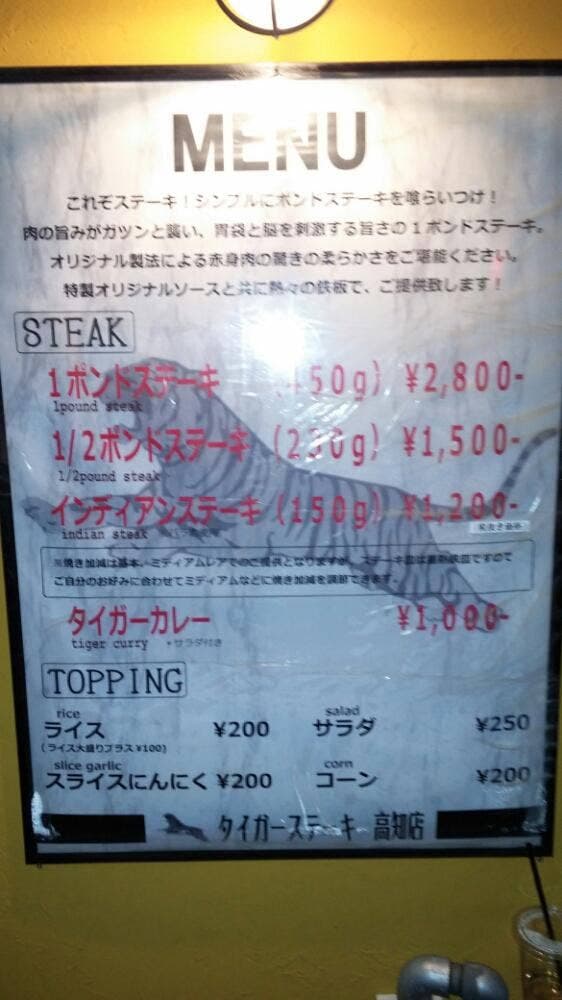 MENU
これぞステーキ！シンプルにポンドステーキを喰らいつけ！
肉の旨みがガツンと襲い、胃袋と脳を刺激する旨さの１ポンドステーキ。
オリジナル製法による赤身肉の驚きの柔らかさをご堪能ください。
特製オリジナルソースと共に熱々の鉄板で、ご提供致します！
STEAK
1ポンドステーキ (450g) ¥2,800-
1pound steak
1/2ポンドステーキ (230g) ¥1,500-
1/2pound steak
インディアンステーキ (150g) ¥1,200-
indian steak
税抜き価格
※焼き加減は基本、ミディアムレアでのご提供となりますが、ステーキ皿は蓄熱鉄皿ですので
ご自分のお好みに合わせてミディアムなどに焼き加減を調節できます。
タイガーカレー ¥1,000-
tiger curry ＊サラダ付き
TOPPING
rice salad
ライス ¥200 サラダ ¥250
(ライス大盛りプラス¥100)
slice garlic corn
スライスにんにく ¥200 コーン ¥200
タイガーステーキ 高知店